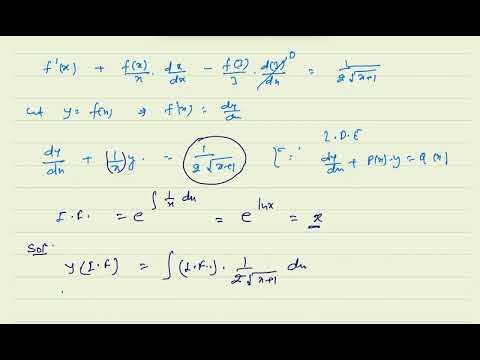 f'(x) + f(x)/x · dx/dx − f(3)/3 · d(3)/dx 0 = 1/2√x+1
Let y = f(x) ⇒ f'(x) = dy/dx
L.D.E
dy/dx + (1/x)y. = 1/2√x+1 [∵ dy/dx + P(x)·y = Q(x)
I.F. = e^∫ 1/x dx = e^lnx = x
Sol:
y(I.F) = ∫(I.F.) · 1/2√x+1 dx